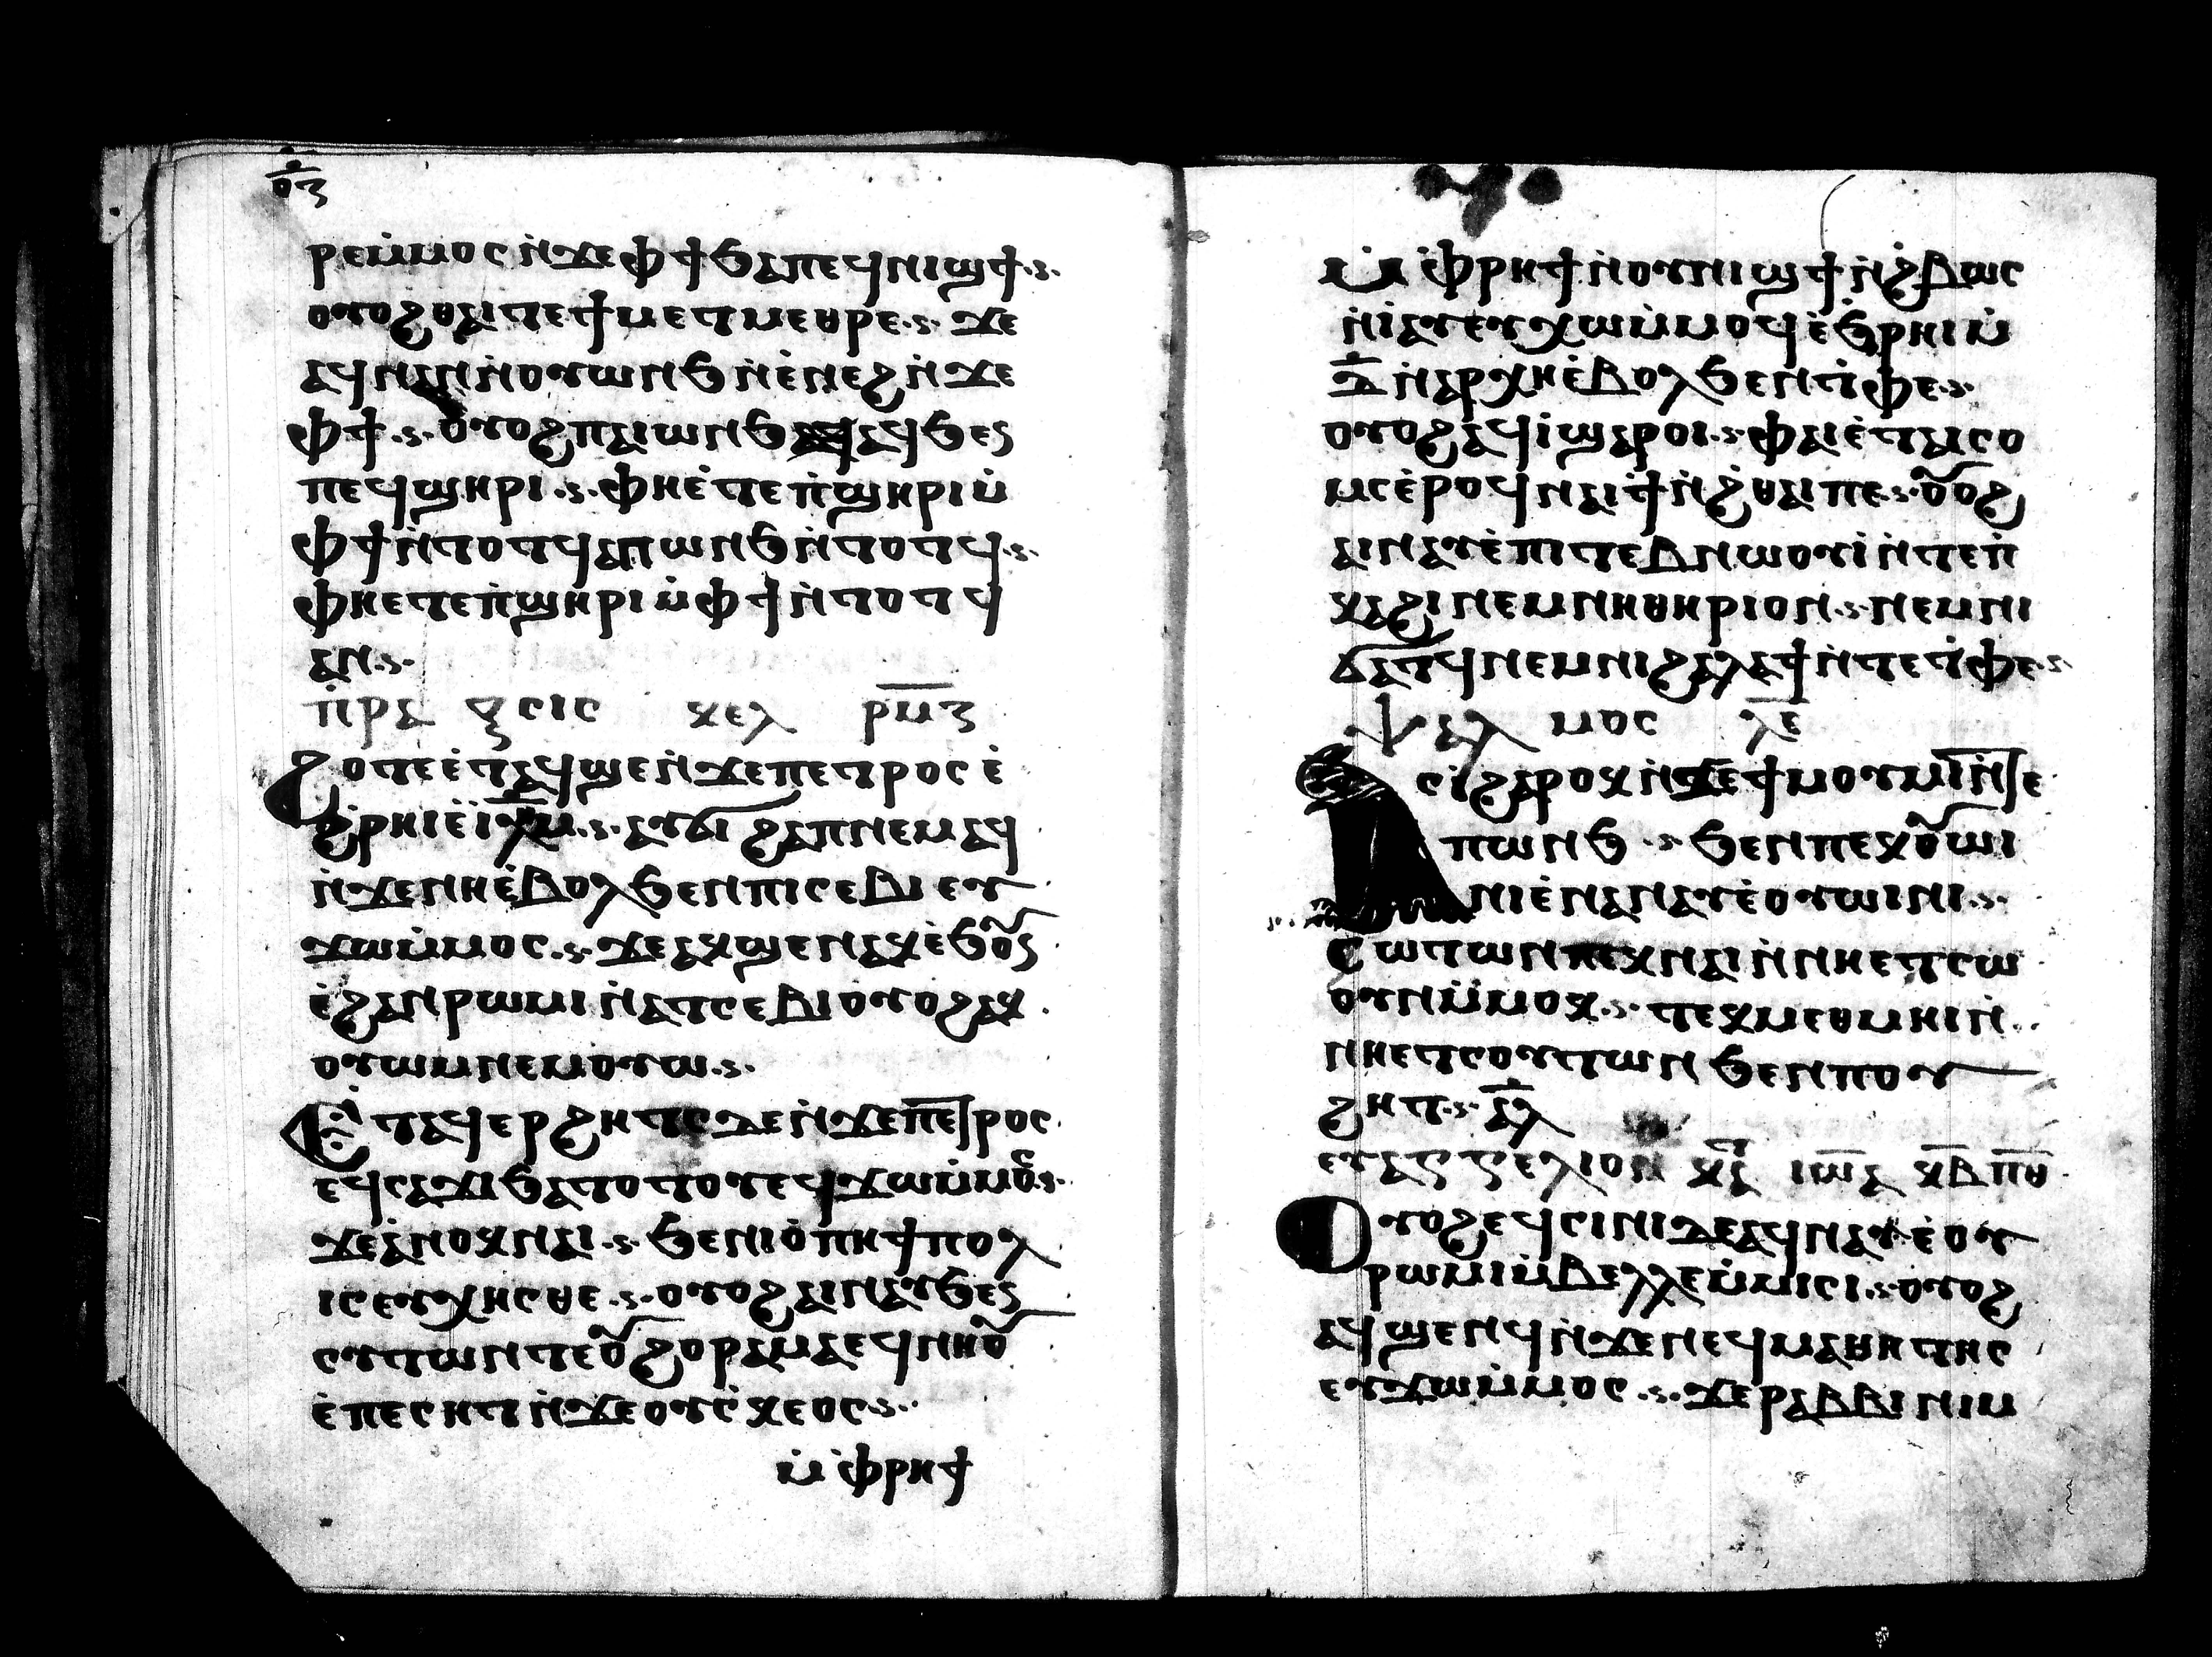 ⲟⲍ
ⲣⲉⲙ̇ⲙⲟⲥ ⲛ̇ϫⲉⲫϯ ϧⲁⲡⲉϥⲛⲓϣϯ
ⲟⲩⲟϩ ⲑⲁⲓ ⲧⲉ ϯⲙⲉⲧⲙⲉⲑⲣⲉ ϫⲉ
ⲁϥⲛⲁⲛ ⲛ̇ⲟⲩⲱⲛϧ ⲛ̇ⲉ̇ⲛⲉϩ ⲛ̇ϫⲉ
ⲫϯ ⲟⲩⲟϩ ⲡⲁⲓⲱⲛϧ ⲁϥϧⲉⲛ
ⲡⲉϥϣⲏⲣⲓ ⲫⲏⲉ̇ⲧⲉ ⲡ̇ϣⲏⲣⲓ ⲙ̇
ⲫϯ ⲛ̇ⲧⲟⲧϥ ⲁⲡⲱⲛϧ ⲛ̇ⲧⲟⲧϥ
ⲫⲏⲉⲧⲉ ⲡ̇ϣⲏⲣⲓ ⲙ̇ⲫϯ ⲛ̇ⲧⲟⲧϥ
ⲁⲛ
ⲡ̇ⲣⲁ ⲝⲥⲓⲥ ⲕⲉⲗ ⲣⲙⲍ
ϩⲟⲧⲉ ⲉ̇ⲧⲁϥϣⲉ ⲛ̇ϫⲉⲡⲉⲧⲣⲟⲥ ⲉ̇
ϩ̇ⲣⲏⲓ ⲉ̇ⲓ̅ⲗ̅ⲏ̅ⲙ̅ ⲁⲩϭⲓ ϩⲁⲡ ⲛⲉⲙⲁϥ
ⲛ̇ϫⲉⲛⲏⲉ̇ⲃⲟⲗ ϧⲉⲛⲡⲓⲥⲉⲃⲓ ⲉⲩ
ϫⲱⲙ̇ⲙⲟⲥ ϫⲉ ⲁⲕϣⲉⲛⲁⲕ ⲉ̇ϧⲟⲩⲛ
ⲉ̇ϩⲁⲛⲣⲱⲙⲓ ⲛ̇ⲁⲧⲥⲉⲃⲓ ⲟⲩⲟϩ ⲁⲕ
ⲟⲩⲱⲙ ⲛⲉⲙⲟⲩⲱ
ⲉⲧⲁϥⲉⲣϩⲏⲧⲥ ⲇⲉ ⲛ̇ϫⲉⲡⲉⲧⲣⲟⲥ
ⲉϥⲥⲁϫⲓ ϧⲁⲧⲟⲧⲟⲩ ⲉϥϫⲱⲙ̇ⲙⲟⲥ
ϫⲉ ⲁ̇ⲛⲟⲕ ⲛⲁⲓ ϧⲉⲛⲓⲟ̇ⲡⲏ ϯⲡⲟⲗ
ⲓⲥ ⲉⲩⲭⲏⲥⲑⲉ ⲟⲩⲟϩ ⲁⲓⲛⲁⲩ ϧⲉⲛ
ⲟⲩⲧⲱⲙⲧ ⲉⲟⲩϩⲟⲣⲁⲙⲁ ⲉϥⲛⲏⲟⲩ
ⲉ̇ⲡⲉⲥⲏⲧ ⲛ̇ϫⲉⲟⲩⲥ̇ⲕⲉⲟⲥ
ⲙ̇ⲫⲣⲏϯ
ⲙ̇ⲫⲣⲏϯ ⲛ̇ⲟⲩⲛⲓϣϯ ⲛ̇ϩ̇ⲃⲱⲥ
ⲛ̇ⲓⲁⲩ ⲉⲩⲭⲱⲙ̇ⲙⲟϥ ⲉ̇ϧⲣⲏⲓ ⲙ̇
ⲇ̅ ⲛ̇ⲁⲣⲭⲏ ⲉ̇ⲃⲟⲗ ϧⲉⲛⲧ̇ⲫⲉ
ⲟⲩⲟϩ ⲁϥⲓ̇ ϣⲁⲣⲟⲓ ⲫⲁⲓ ⲉ̇ⲧⲁⲓⲥⲟ
ⲙⲥ ⲉ̇ⲣⲟϥ ⲛⲁⲓϯ ⲛ̇ϩ̇ⲑⲁⲓ ⲡⲉ ⲟⲩⲟϩ
ⲁⲓⲛⲁⲩ ⲉ̇ⲡⲓⲧⲉⲃⲛⲱⲟⲩⲓ̇ ⲛ̇ⲧⲉⲡ̇
ⲕⲁϩⲓ ⲛⲉⲙⲛⲓⲑⲏⲣⲓⲟⲛ ⲛⲉⲙⲛⲓ
ϭⲁⲧϥⲓ ⲛⲉⲙⲛⲓϩⲁⲗⲁϯ ⲛ̇ⲧⲉⲧ̇ⲫⲉ
ⲯⲁⲗ ⲙⲟⲥ ⲗⲉ
ⲁⲥⲓ̇ ϩⲁⲣⲟⲕ ⲛ̇ϫⲉϯⲙⲟⲩⲙⲓ ⲛ̇ⲧⲉ
ⲡⲱⲛϧ ϧⲉⲛⲡⲉⲕⲟⲩⲱⲓ
ⲛⲓ ⲉ̇ⲛⲁⲛⲁⲩ ⲉ̇ⲟⲩⲱⲓⲛⲓ
ⲥⲱⲧⲱⲛ ⲡⲉⲕⲛⲁⲓ ⲛ̇ⲛⲏⲉⲧⲥⲱ
ⲟⲩⲛ ⲙ̇ⲙⲟⲕ ⲧⲉⲕⲙⲉⲑⲙⲏⲓ ⲛ̇
ⲛⲏⲉⲧⲥⲟⲩⲧⲱⲛ ϧⲉⲛⲡⲟⲩ
ϩⲏⲧ ⲁⲗ
ⲉⲩⲁⲅⲅⲉⲗⲓⲟⲛ ⲕⲁ ⲓⲱⲁ ⲕⲃ ⲡⲑ
ⲟⲩⲟϩ ⲉϥⲥⲓⲛⲓ ⲇⲉ ⲁϥⲛⲁⲩ ⲉ̇ⲟⲩ
ⲣⲱⲙⲓ ⲙ̇ⲃⲉⲗⲗⲉ ⲙ̇ⲙⲓⲥⲓ ⲟⲩⲟϩ
ⲁϥϣⲉⲛϥ ⲛ̇ϫⲉⲛⲉϥⲙⲁⲑⲏⲧⲏⲥ
ⲉⲩϫⲱⲙ̇ⲙⲟⲥ ϫⲉ ⲣⲁⲃⲃⲓ ⲛⲓⲙ